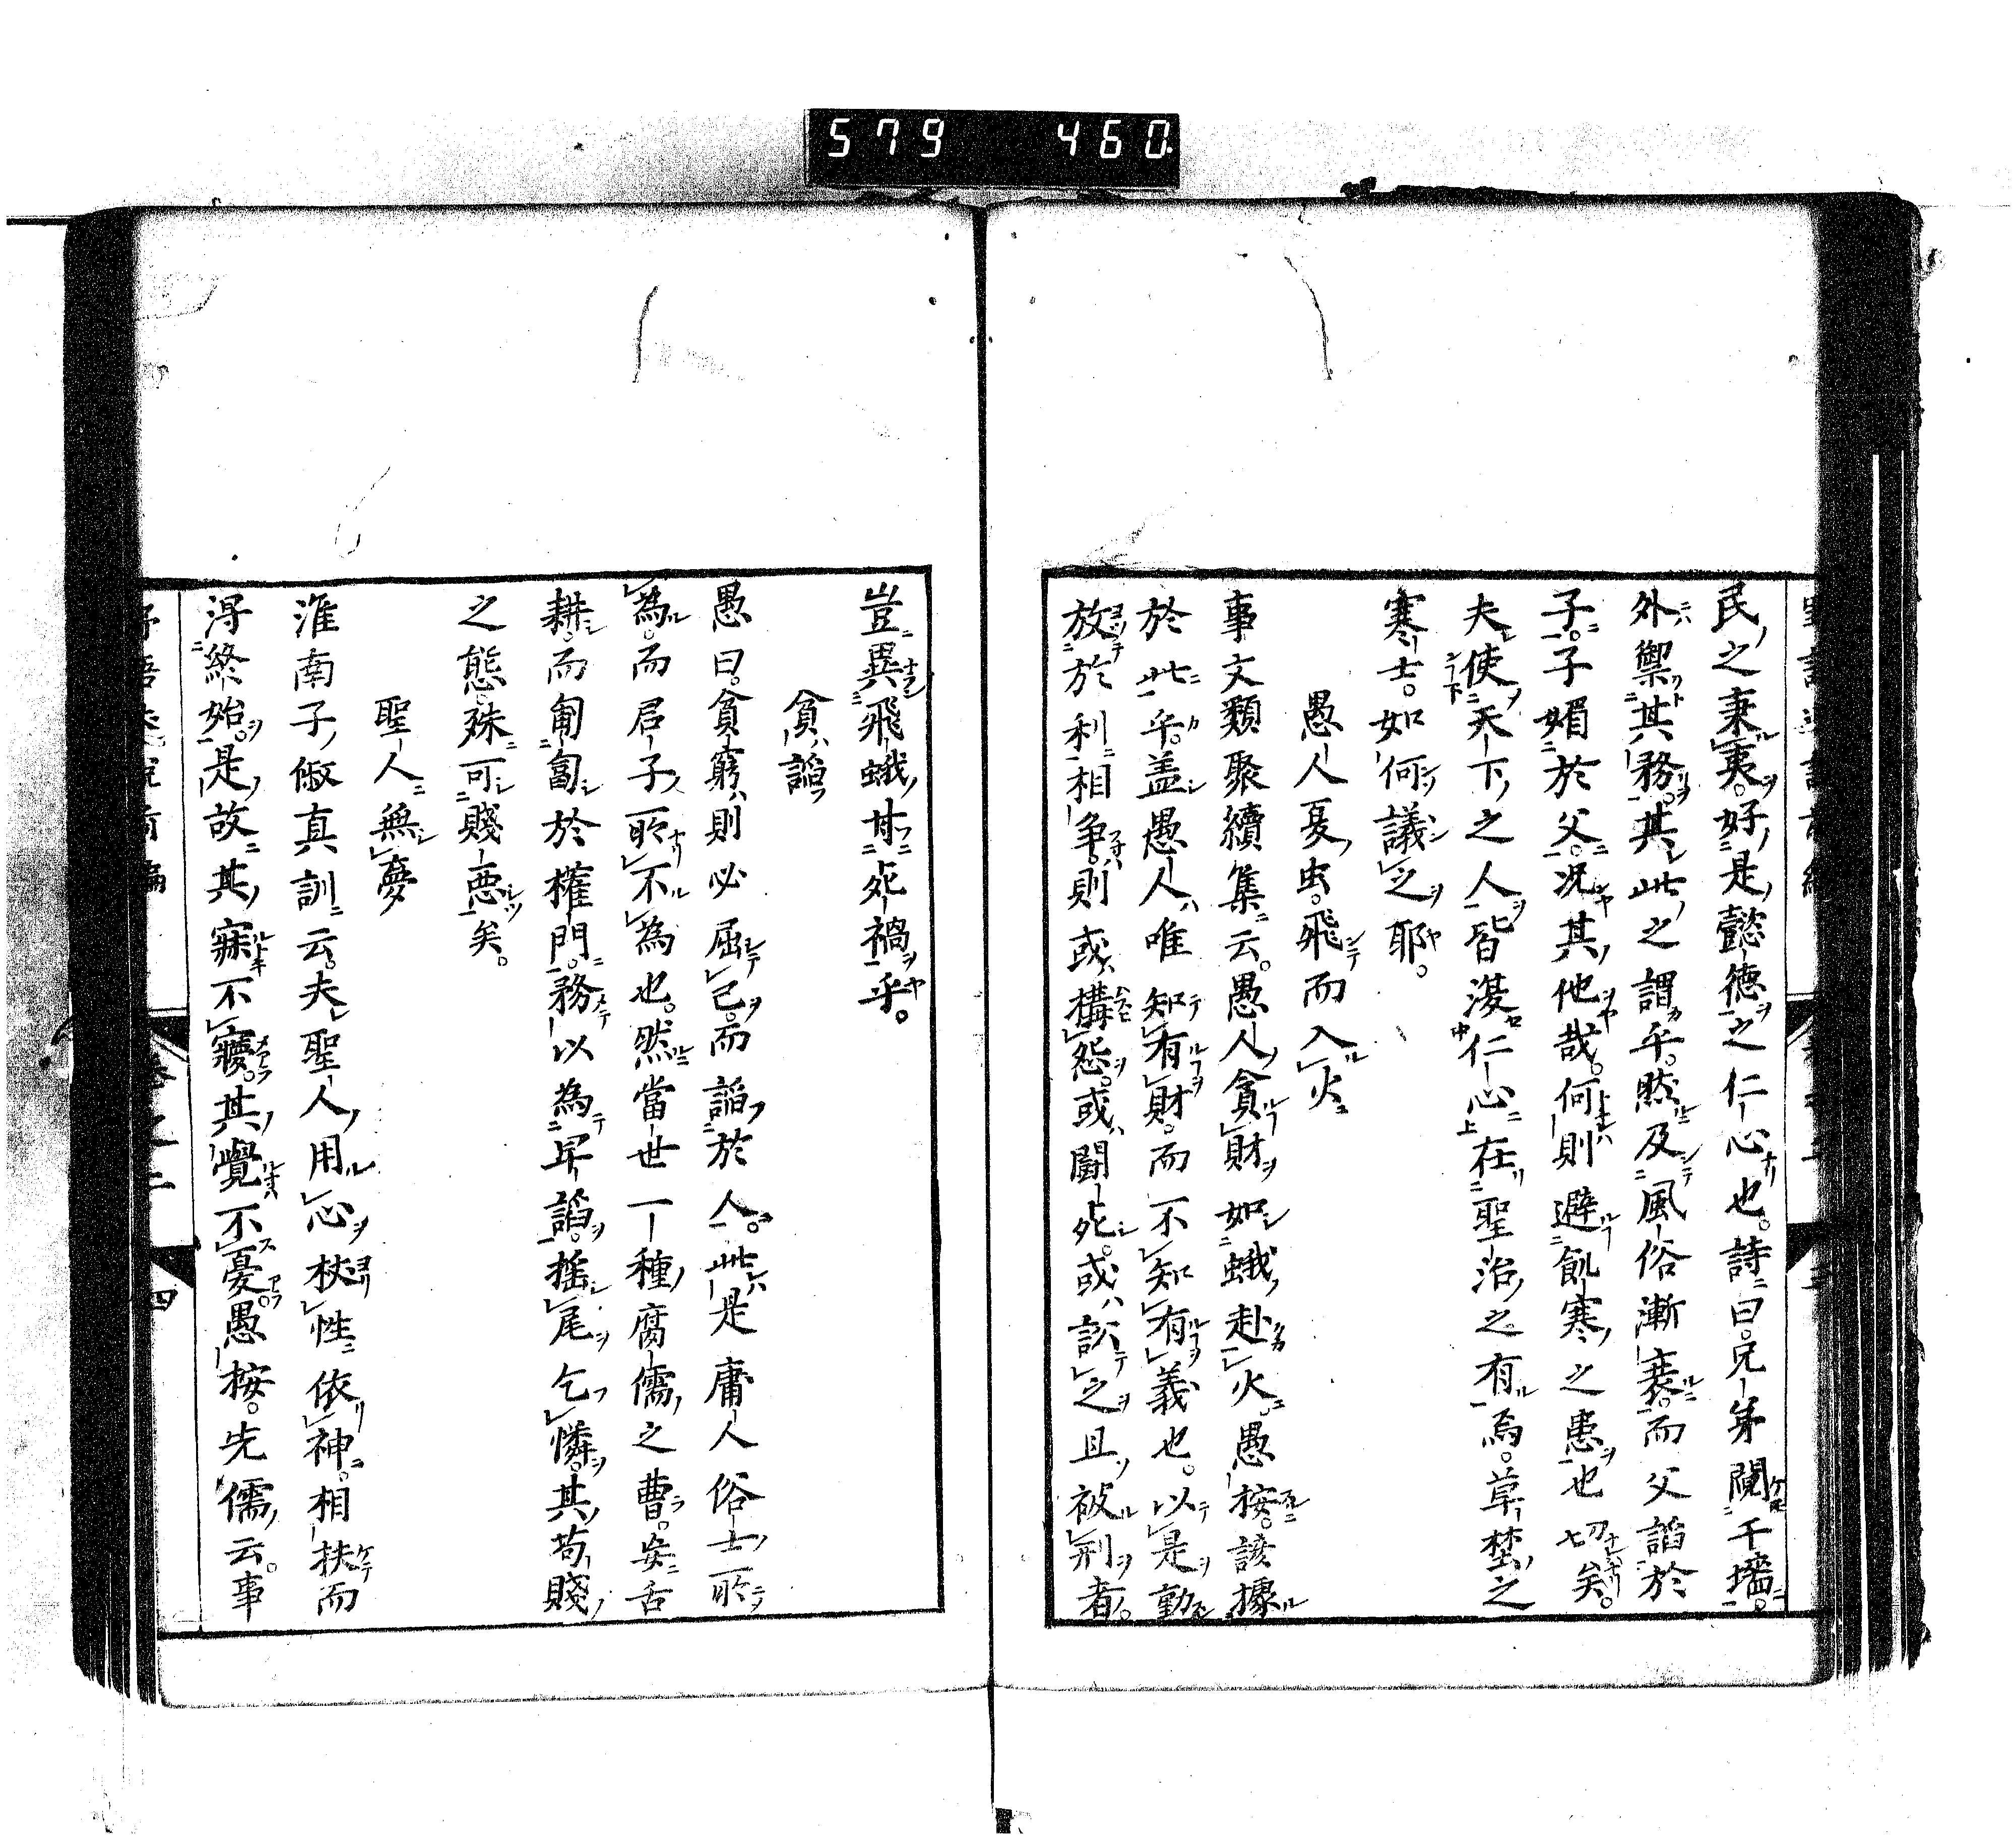 579 460
民之秉夷。好是懿德之仁心也。詩曰。兄弟䦧于墻。
外禦其務。其此之謂乎。然及風俗漸衰。而父謟於
子。子媚於父。况其他哉。何則避飢寒之患也切矣。
夫使天下之人皆浸仁心在聖治之有焉。草埜之
寒士。如何議之耶。
愚人夏虫。飛而入火
事文類聚續集云。愚人貪財如蛾赴火。愚按。諺據
於此乎。盖愚人唯知有財。而不知有義也。以是動
放於利相争。則或構怨。或鬪死。或訟之且被刑者。
豈異飛蛾甘死禍乎。
貧謟
愚曰。貧窮則必屈己。而謟於人。此是庸人俗士所
為。而君子所不為也。然當世一種腐儒之曹。安舌
耕。而匍匐於權門。務以為卑謟。揺尾乞憐。其苟賤
之態。殊可賤惡矣。
聖人無夢
淮南子俶真訓云。夫聖人用心杖性依神。相扶而
得終始。是故其寐不寱。其覺不憂。愚按。先儒云。事
卷之二 四